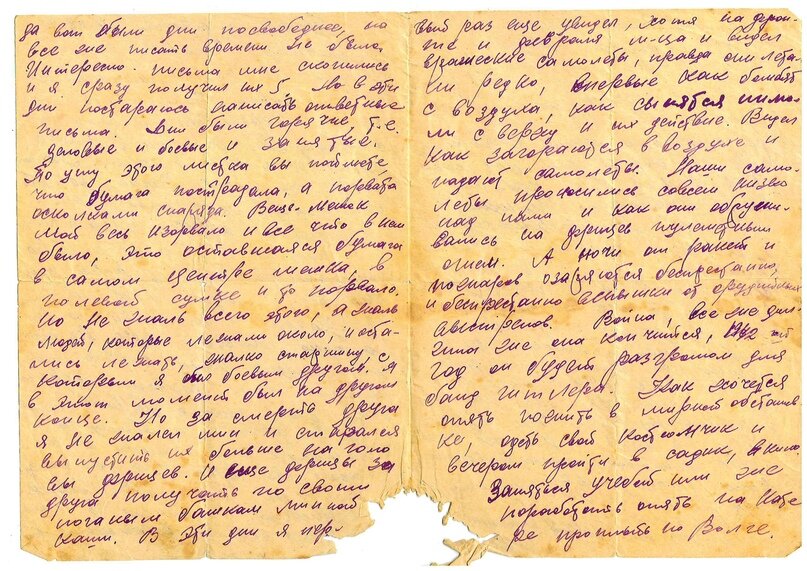 да вот были дни посвободнее, но
все же писать времени не было.
Интересно письма мне скопились
и я сразу получил их 5. Но в эти
дни постараюсь написать ответные
письма. Дни были горячие, т.е.
деловые и боевые и занятые.
По углу этого листка вы поймете
что бумага пострадала, а порвата
осколками снаряда. Веще-мешок
мой весь изорвало и все что в нем
было, это оставшаяся бумага
в самом центре мешка, в
полевой сумке и то порвало.
Но не жаль всего этого, а жаль
людей, которые лежали около, и оста-
лись лежать, жалко старшину, с
которым я был боевым другом. Я
в этот момент был на другом
конце. Но за смерть друга
я не жалел мин и старался
выпустить их больше на голо
вы фрицев. И еще фрицы за
друга получать по своим
поганым башкам минной
каши. В эти дни я пер-
вый раз еще увидел, хотя на фрон-
те и февраля м-ца и видел
вражеские самолеты, правда они лета-
ли редко, впервые как бомбят
с воздуха, как сыпятся
с верху и их действие. Видел
как загораются в воздухе и
падают самолеты. Наши само-
леты проносились совсем низко
над нами и как они обруши-
вались на фрицев пулеметным
огнем. А ночи от ракет и
пожаров озаряются беспрестанно,
и беспрестанно вспышки от орудийных
выстрелов. Война, все же дол-
жна же она кончится, 1942 -ой
год он будет разгромом для
банд гитлера. Как хочется
опять пожить в мирной обстанов
ке, одеть свой костюмчик и
вечером пройти в садик, в кино.
Заняться учебой или же
поработать опять на кате
ре проплыть по Волге.